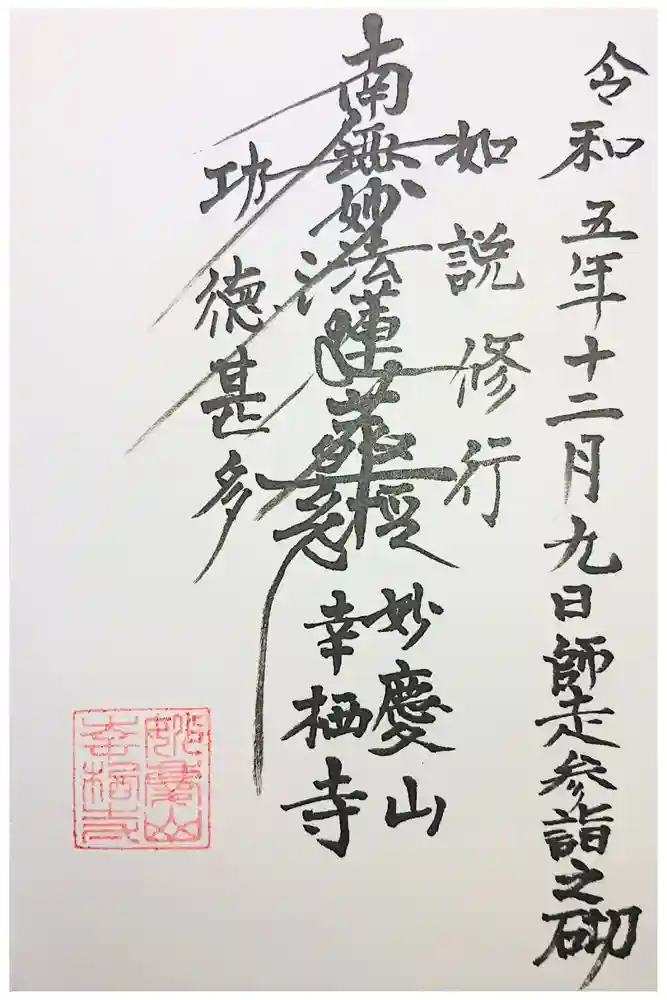 令和五年十二月九日師走参詣之砌
如説修行
南無妙法蓮華経
功徳甚多
妙慶山
幸栖寺
妙慶山
幸栖寺